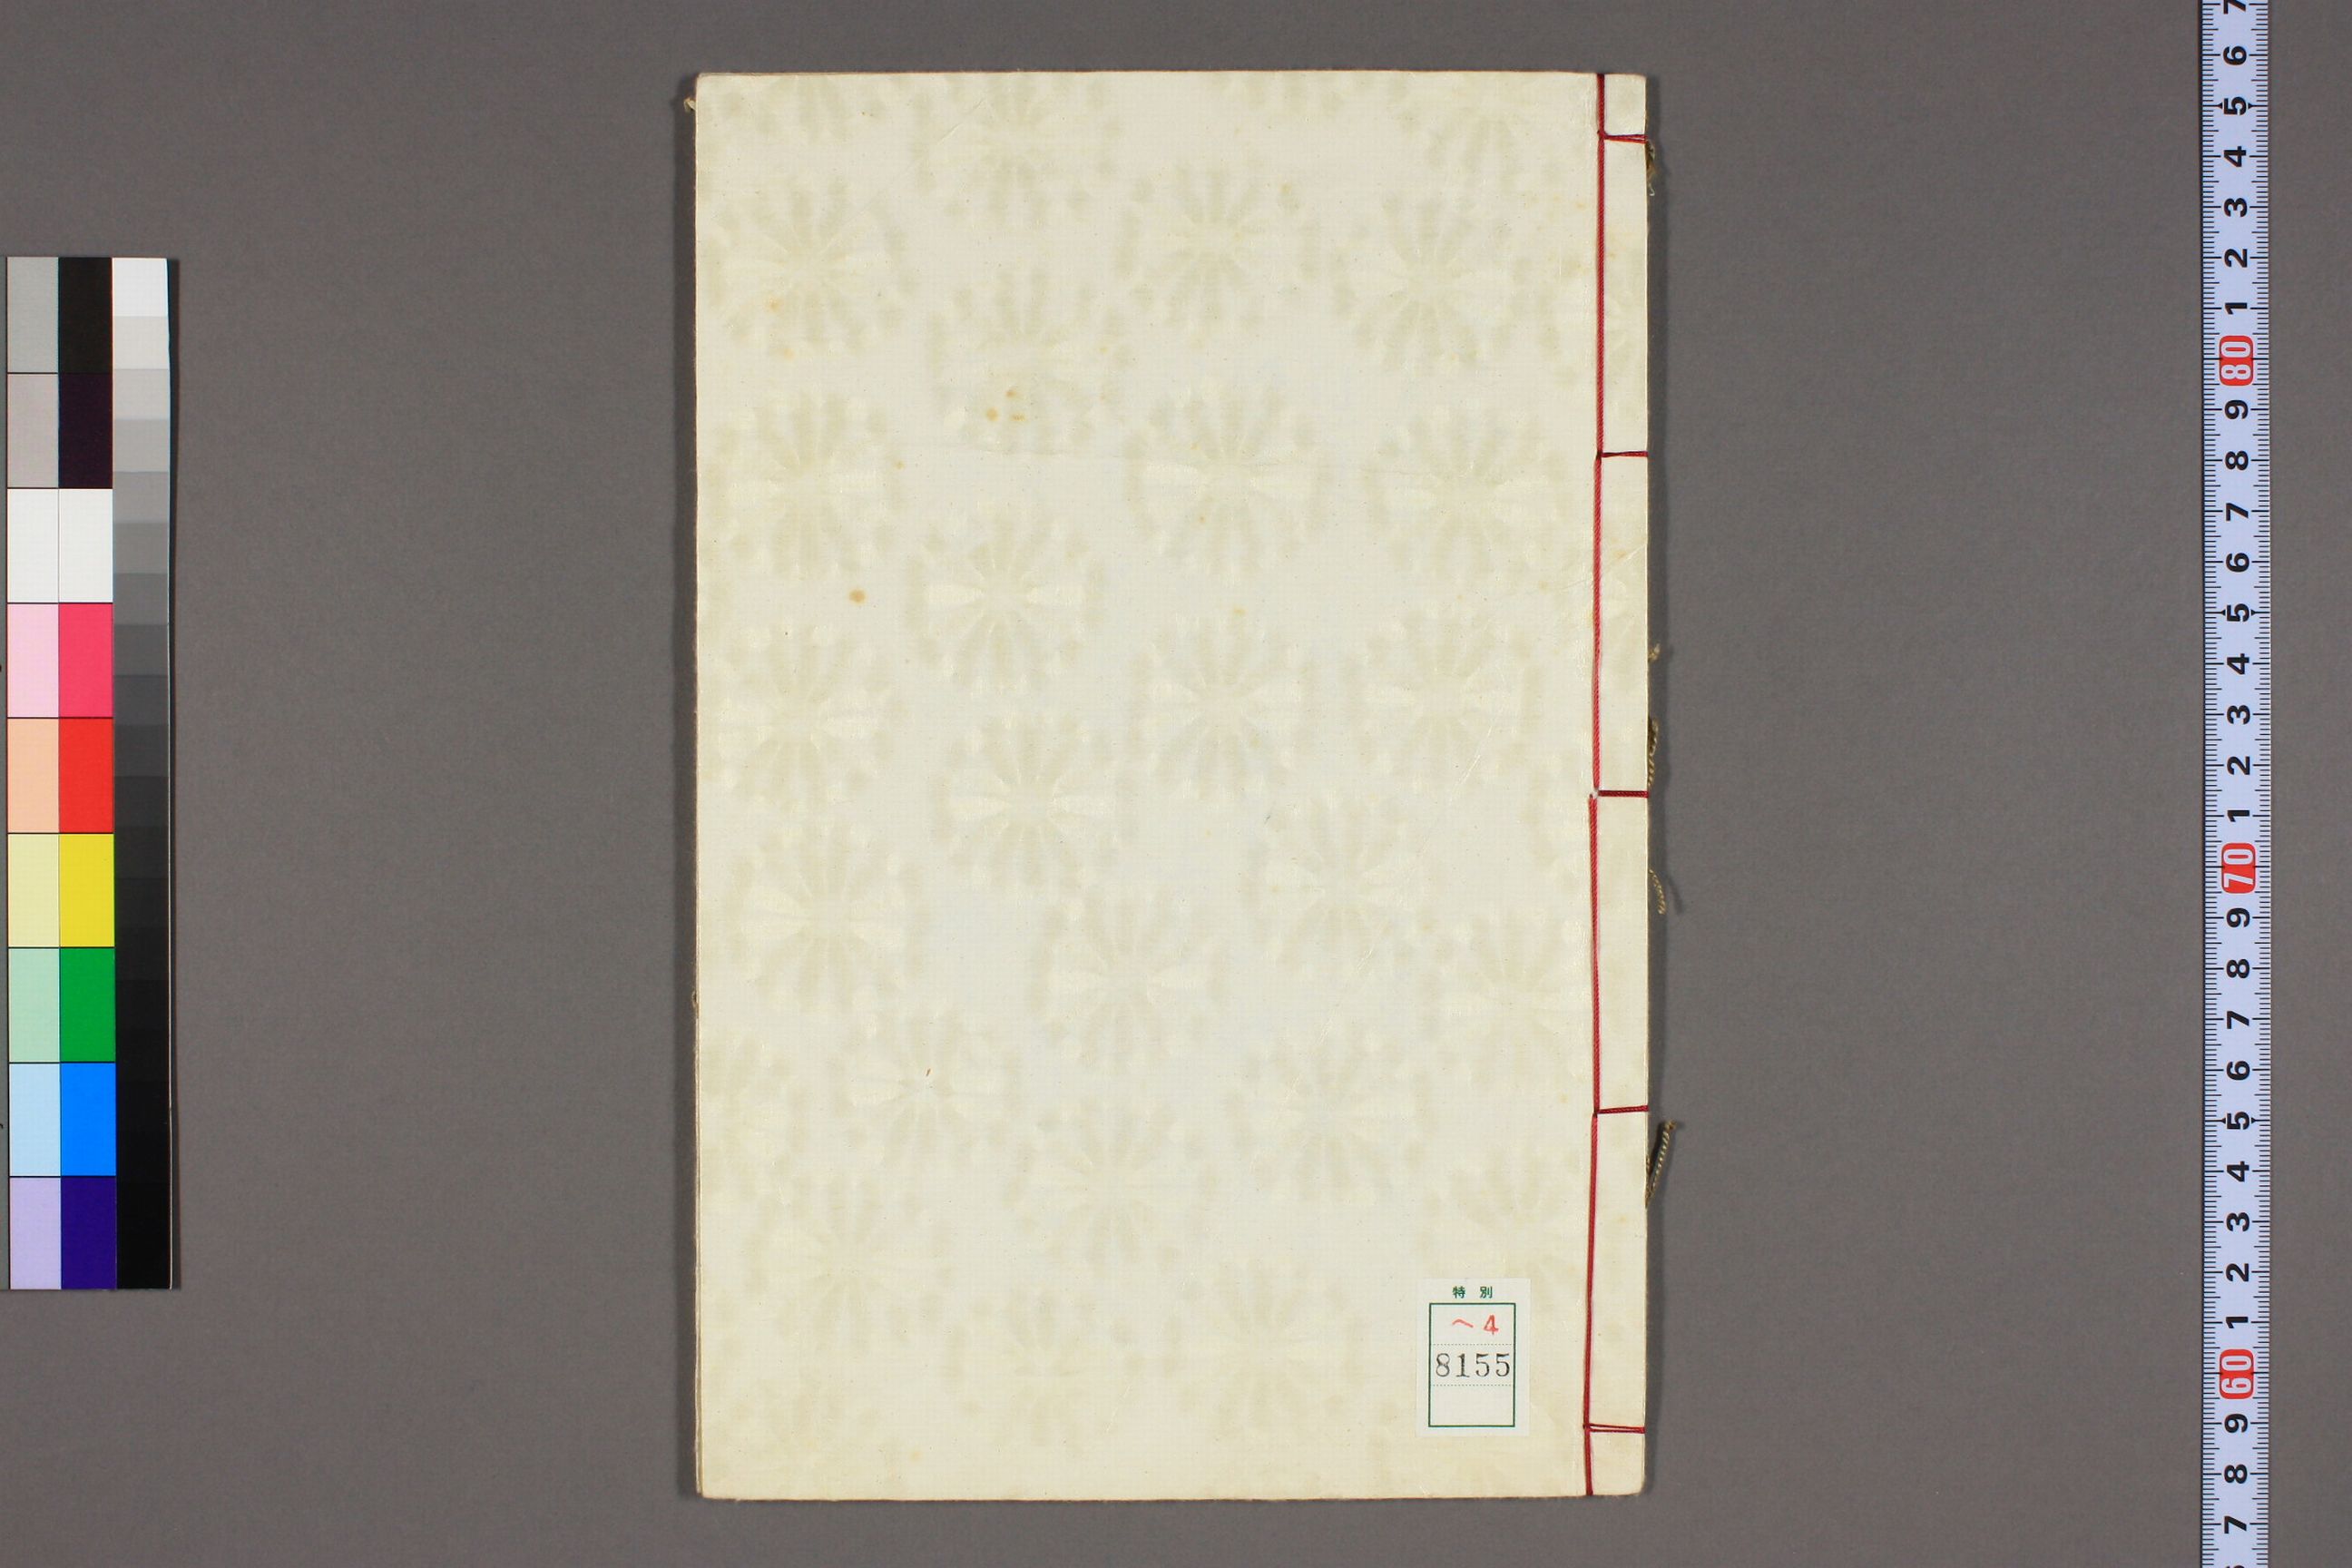 特別
ヘ4
8155
7
6
5
4
3
2
1
80
9
8
7
6
5
4
3
2
1
70
9
8
7
6
5
4
3
2
1
60
9
8
7